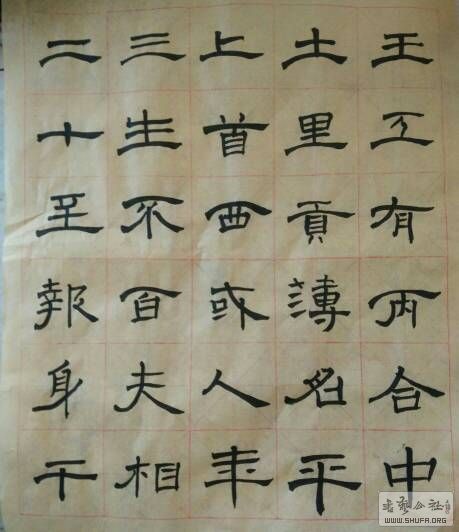 王工有丙合中
土里貢薄名平
上首西或人年
三生不百夫相
二十至報身干
书艺公社
WWW.SHUFA.ORG